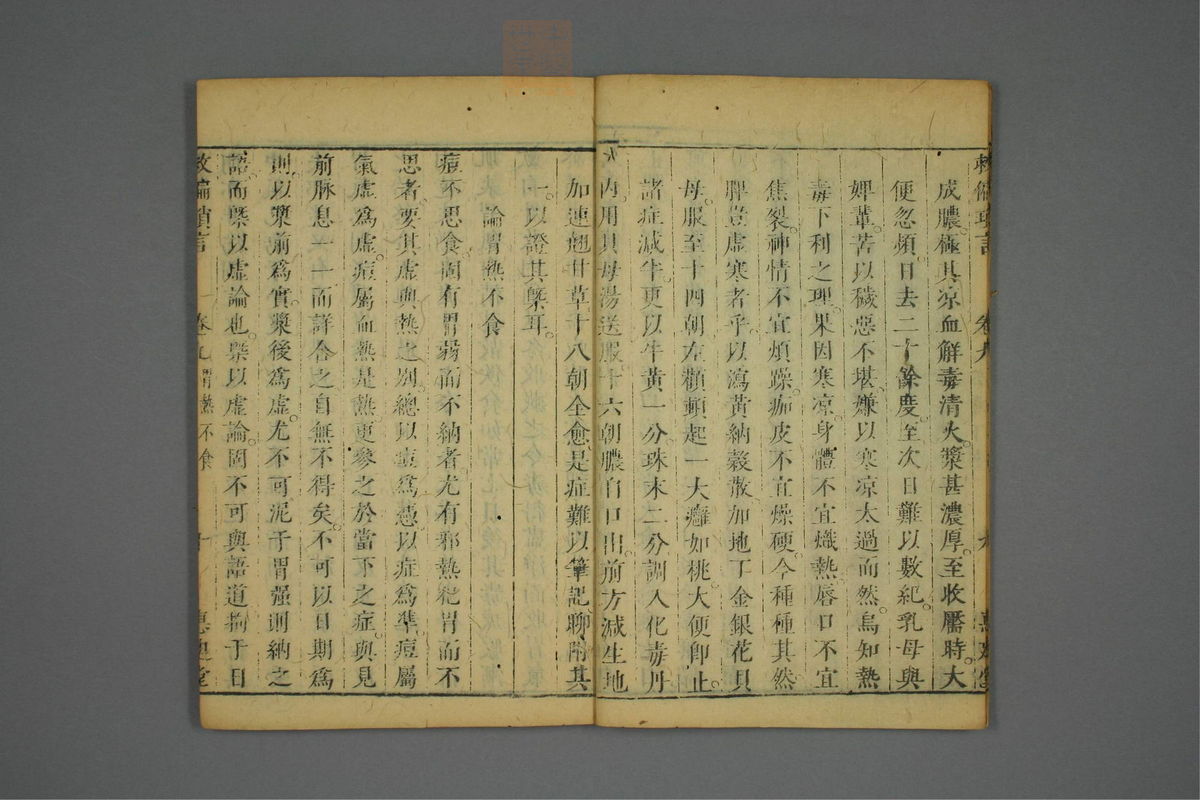 救偏瑣言 卷九 九 惠迪堂
成膿極其凉血解毒清火漿甚濃厚至收靨時大
便忽頻日去二十餘度至次日難以數紀乳母與
婢輩苦以穢惡不堪嫌以寒凉太過而然烏知熱
毒下利之理果因寒凉身體不宜熾熱唇口不宜
焦裂神情不宜煩躁痂皮不宜燥硬今種種其然
脾豈虛寒者乎以瀉黃納穀散加地丁金銀花貝
母服至十四朝左顴頓起一大癰如桃大便卽止
諸症減半更以牛黃一分珠末二分調入化毒丹
內用貝母湯送服十六朝膿自口出前方減生地
加連翹甘草十八朝全愈是症難以筆記聊附其
一以證其槩耳
論胃熱不食
痘不思食固有胃弱而不納者尤有邪熱秕胃而不
思者要其虛與熱之別總以痘爲憑以症爲準痘屬
氣虛爲虛痘屬血熱是熱更參之於當下之症與見
前脉息一一而詳合之自無不得矣不可以日期爲
則以漿前爲實漿後爲虛尤不可泥于胃强則納之
語而槩以虛論也槩以虛論固不可與語道拘于日
救偏瑣言 卷九 胃熱不食 十 惠迪堂